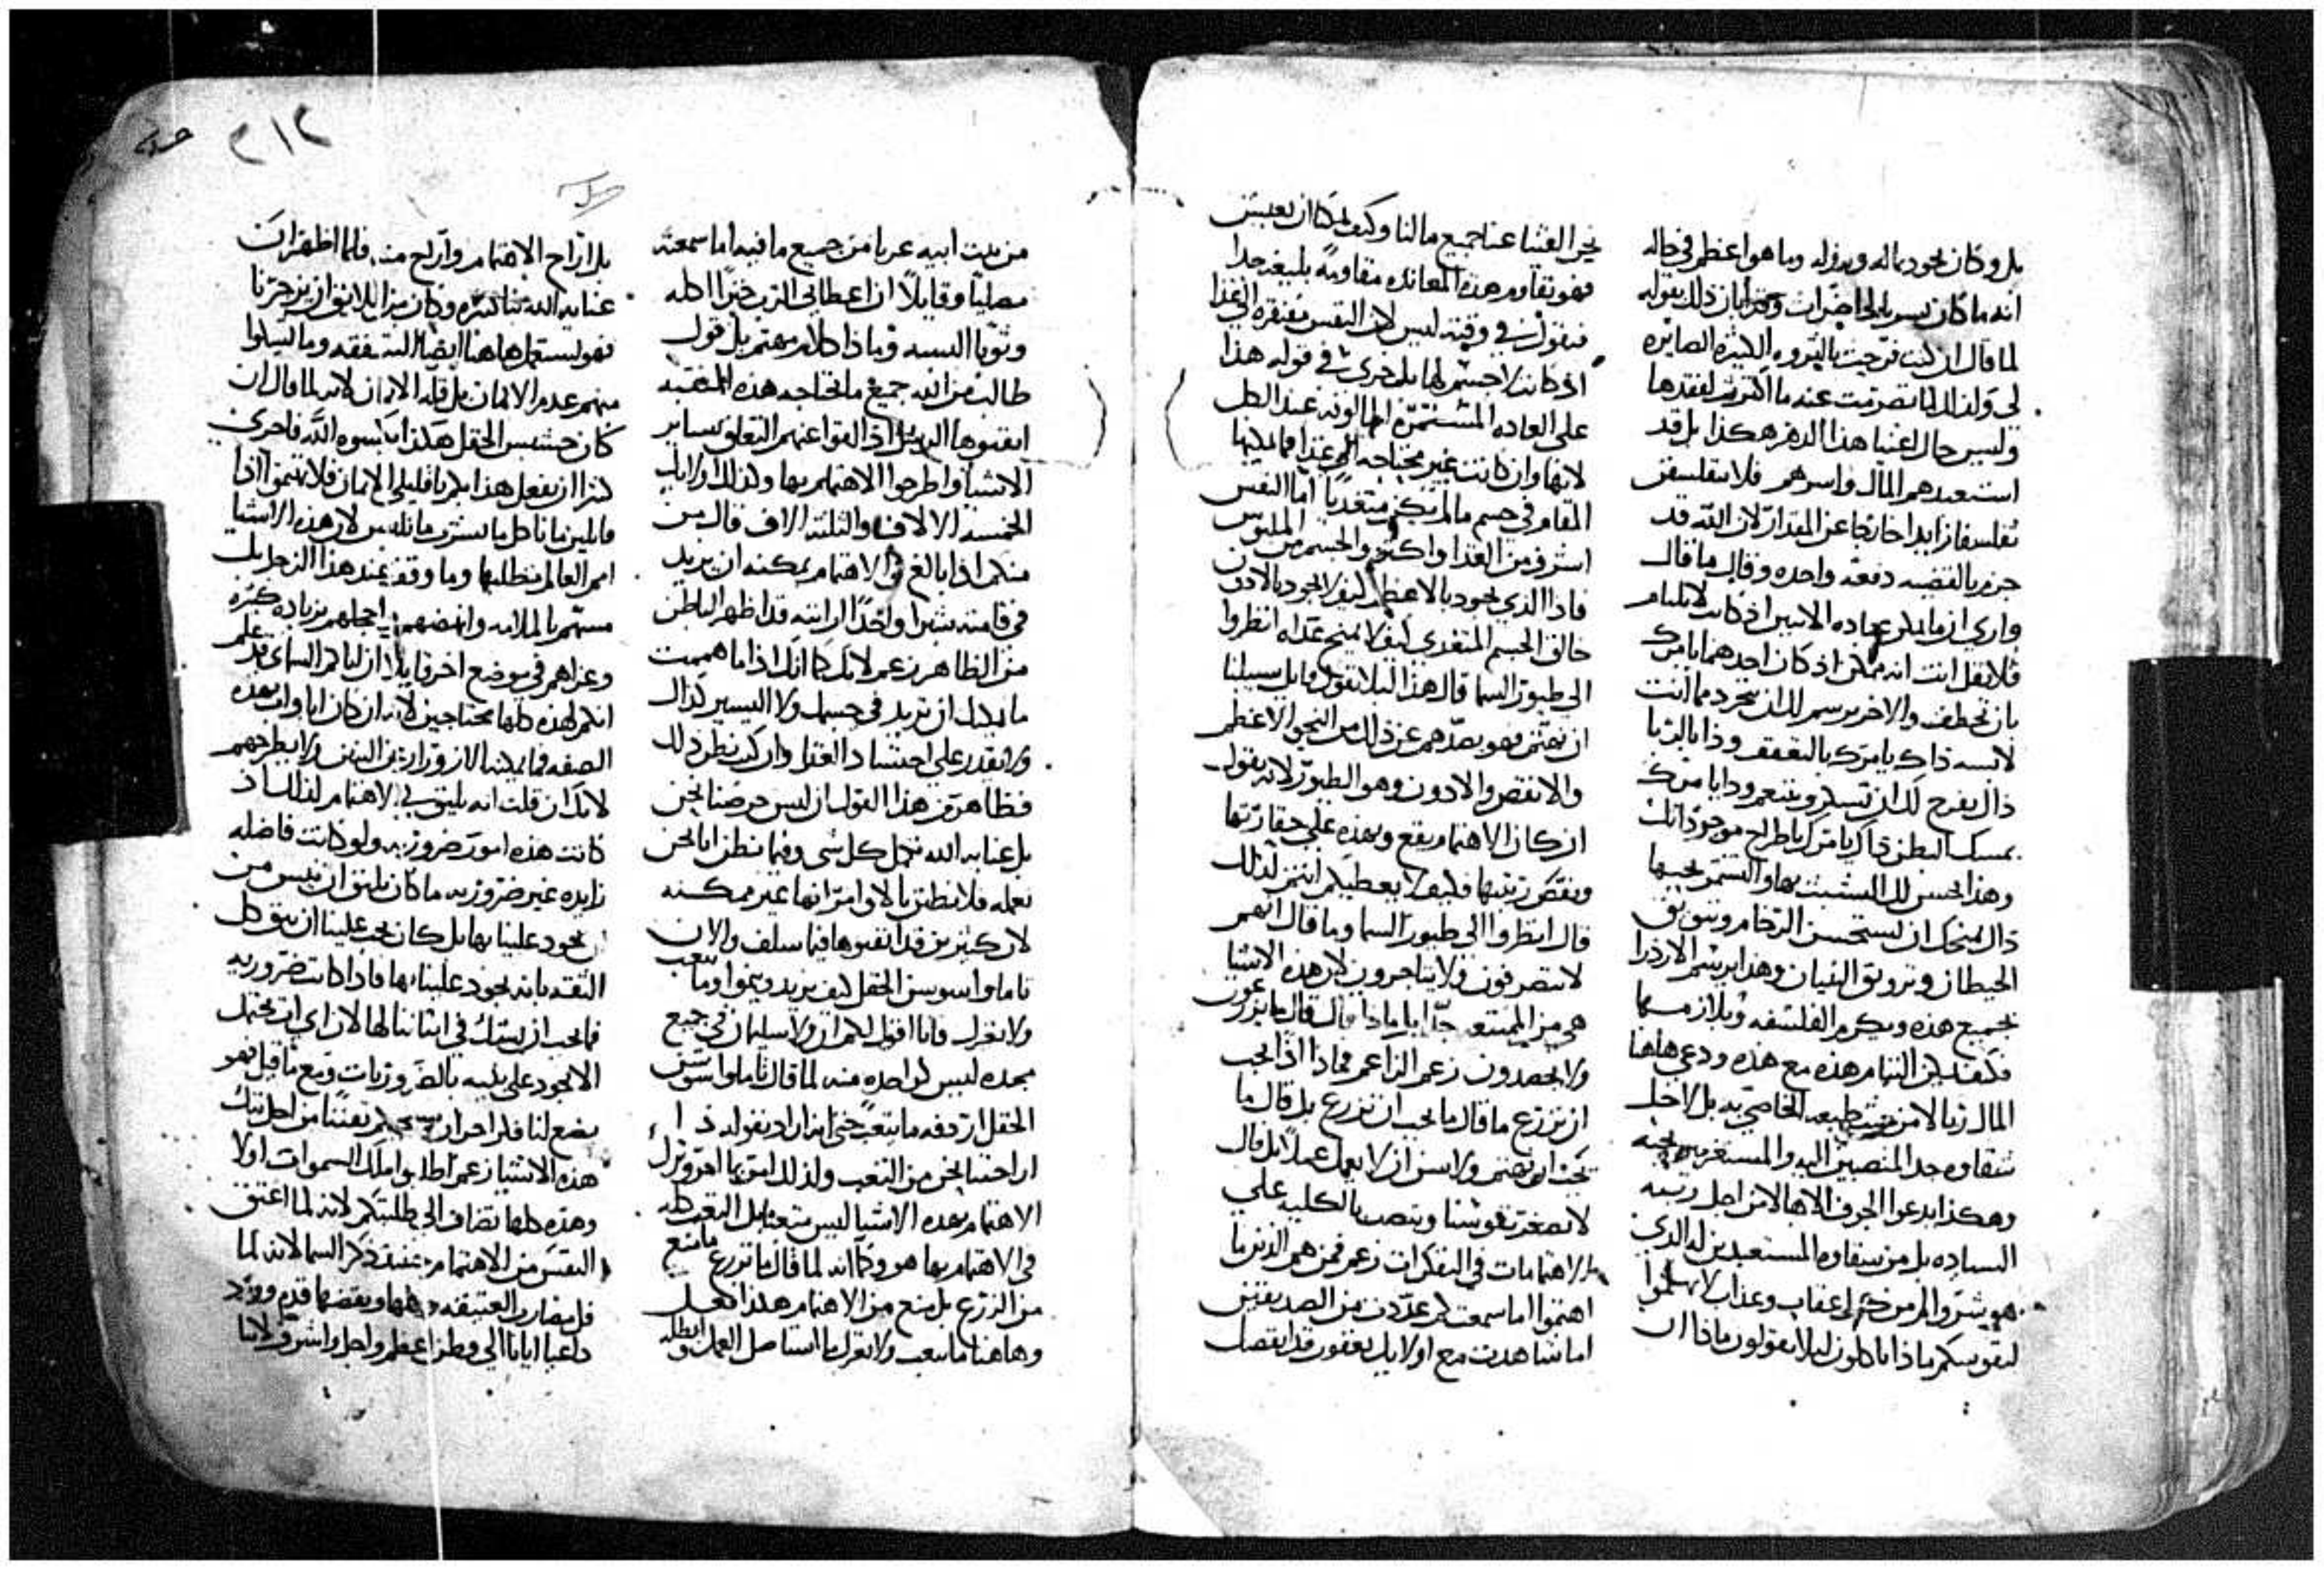 بل وكان يجود بماله وبدوله وما هو اعظم في حاله
انه ما كان يسر بالحاضرات وهو ابان ذلك بقوله
لما قال ان كنت فرحت بالثروه الكثيره الصايره
لي ولذلك لما تصرمت عنه ما اكترث لفقدها
وليس حال اغنيا هذا الدهر هكذا بل قد
استعبدهم المال واسرهم فلا تتفلسفن
تفلسفا زايدا خارجا عن المقدار لان الله قد
جزم بالقضيه دفعه واحده وقال ما قال
واري ان ما يمكن عباده الاثنين اذ كانت لا تلتام
فلا تقل انت انه ممكن اذ كان احدهما يامرك
بان تخطف والاخر يرسم لك ان تتجرد مما انت
لابسه ذاك يامرك بالتعفف وذا بالزنا
ذاك يفرح لك ان تسكر وتتنعم وذا يامرك
بمسك البطن ذاك يامرك باطراح موجوداتك
وهذا يحسن لك التشبث بها والتمتع بحبها
ذاك يمنحك ان تستحسن الرخام وتزويق
الحيطان وتزويق البنيان وهذا يرسم الازدرا
بجميع هذه ويكرم الفلسفه ويلازمها
فكيف يمكن التيام هذه مع هذه ودعي هاهنا
المال ربا لا من حيث طبيعه الخاصيه به بل لاجل
شقاوه جدا المنصبين اليه والمستغرمين بحبه
وهكذا يدعوا الجوف الاها لا من اجل رتبه
السياده بل من شقاوه المستعبدين له الذي
هو شر والم من كل عقاب وعذاب لا تهتموا
لنفوسكم ماذا تاكلون ليلا يقولون ماذا ان
نحن القينا عنا جميع مالنا وكيف يمكنا ان نعيش
فهو يقاوم هذه المعانده مقاومه بليغه جدا
فيقول في وقته ليس لان النفس مفتقره الي الغذا
اذ كانت لا جسم لها بل جري في قوله هذا
علي العاده المستمره المالوفه عند الكل
لانها وان كانت غير محتاجه الي غذا فما يمكنها
المقام في جسم ما لم يكن متغذيا اما النفس
اشرف من الغذا واكثر والجسم من الملبوس
فاذا الذي يجود بالاعظم كيف لا يجود بالادون
خالق الجسم المتغدي كيف لا يمنح غداه انظروا
الي طيور السما قال هذا ليلا يقول قايل سبيلنا
ان نهتم فهو يصدهم عن ذلك من النحو الاعظم
والانقص والادون وهو الطيور لانه يقول
ان كان الاهتمام يقع بهذه علي حقارتها
ونقص رتبتها فكيف لا يعطيكم انتم لذلك
قال انظروا الي طيور السما وما قال انهم
لا يتصرفون ولا يتاجرون لان هذه الاشيا
هي من الممتنع جدا بل ماذا قال قال ما يزرعون
ولا يحصدون زعم الزاعم فماذا اذا لا يجب
ان نزرع ما قال ما يجب ان نزرع بل قال ما
يجب ان نهتم وليس ان لا نعمل عملا بل قال
لا تصغر نفوسنا وتنصب بالكليه علي
الاهتمامات في التفكرات زعم فمن هم الذين ما
اهتموا اما سمعت كم عددت من الصديقين
اما شاهدت مع اولايك يعقوب قد انفصل
٢١٢
من بيت ابيه عريا من جميع ما فيه اما سمعته
مصليا وقايلا ان اعطاني الرب خبزا اكله
وثوبا البسه وما ذا كلام مهتم بل قول
طالب من الله جميع ما يحتاجه هذه المنقبه
اقتنوها الرسل اذ القوا عنهم التعلق بساير
الاشيا واطرحوا الاهتمام بها وكذلك اولايك
الخمسه الالاف والثلثه الالاف قال من
منكم اذا بالغ في الاهتمام يمكنه ان يزيد
في قامته شبرا واحدا ارايته قد اظهر الباطن
من الظاهر زعم لانك كما انك اذا ما هممت
ما يمكنك ان تزيد في جسمك ولا اليسير كذلك
ولا تقدر علي احتشاد الغني وان كنت تظن ذلك
فظاهر من هذا القول ان ليس حرصنا نحن
بل عنايه الله تكمل كل شي وفيما نظن انا نحن
نعمله فلا نظن بالاوامر انها غير ممكنه
لان كثيرين قد اتقنوها فيما سلف والان
تاملوا سوسن الحقل كيف يزيد وينموا وما يتعب
ولا يغزل فانا اقول لكم ان ولا سليمان في جميع
مجده لبس كواحده منه لما قال تاملوا سوسن
الحقل اردفه ما يتعب حتي انه اراد بقوله ذا
اراحتنا نحن من التعب ولذلك امرنا امر وترك
الاهتمام بهذه الاشيا ليس تعبا بل التعب كله
في الاهتمام بها هو وكما انه لما قال ما تزرع ما منع
من الزرع بل منع من الاهتمام هكذا فعل
وهاهنا ما تتعب ولا تغزل ما استاصل العمل وابطله
بل ازاح الاهتمام واراح منه فلما اظهر ان
عنايه الله بنا كثيره وكان من اللايق ان يزجرنا
فهو يستعمل هاهنا ايضا السفقه وما يسلوا
منهم عدم الايمان بل قله الايمان لانه لما قال ان
كان حشيش الحقل هكذا يكسوه الله فاحري
كثيرا ان يفعل هذا بكم يا قليلي الايمان فلا تهتموا اذا
قايلين ما ناكل ما نشرب ما نلبس لان هذه الاشيا
امم العالم تطلبها وما وقف عند هذا الزجر بل
مسهم بالملامه وانهضهم واخجلهم بزياده كثيره
وعزاهم في موضع اخر قايلا ان اباكم السماي قد علم
انكم لهذه كلها محتاجين لانه ان كان ابا وابا بهذه
الصفه فما يمكنه الازورار عن البنين ولا يطرحهم
لانك ان قلت انه يليق بي الاهتمام لذلك اذ
كانت هذه امور ضروريه ولو كانت فاضله
زايده غير ضروريه ما كان يليق ان نيس من
ان يجود علينا بها بل كان يجب علينا ان نثق كل
الثقه بانه يجود علينا بها فاذا كانت ضروريه
فما يجب ان نشك في اتياننا لها لان اي اب يحتمل
الا يجود علي بنيه بالضروريات ومع ما قيل فهو
يضع لنا فكر احرار يستحثكم يقيننا من اجل تلك
هذه الاشيا زعم اطلبوا ملك السموات اولا
وهذه كلها تضاف الي طلبتكم لانه لما اعتق
النفس من الاهتمام عند ذكر السما لانه لما
فل مضار العتيقه وفهمها ويقضها قدم وورد
داعيا ايانا الي وطن اعظم واجل واشرف لاننا